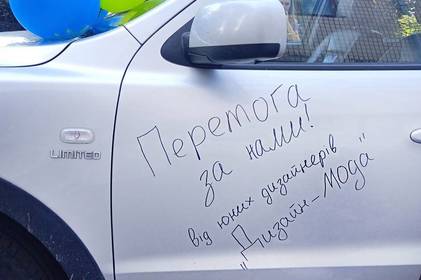 LIMITED
Перемога
за нами!
від юних дизайнерів
"Дизайн-мода"